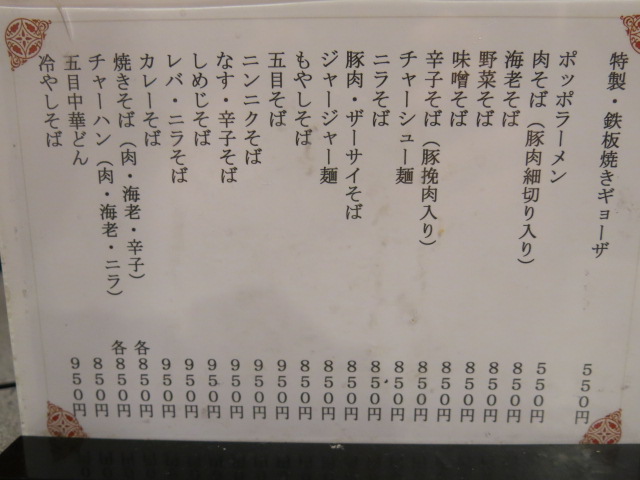 特製・鉄板焼きギョーザ 550円
ポッポラーメン 550円
肉そば（豚肉細切り入り） 850円
海老そば 850円
野菜そば 850円
味噌そば 850円
辛子そば（豚挽肉入り） 850円
チャーシュー麺 850円
ニラそば 850円
豚肉・ザーサイそば 850円
ジャージャー麺 850円
もやしそば 850円
五目そば 950円
ニンニクそば 950円
なす・辛子そば 950円
しめじそば 950円
レバ・ニラそば 950円
カレーそば 950円
焼きそば（肉・海老・辛子） 各850円
チャーハン（肉・海老・ニラ） 各850円
五目中華どん 850円
冷やしそば 950円